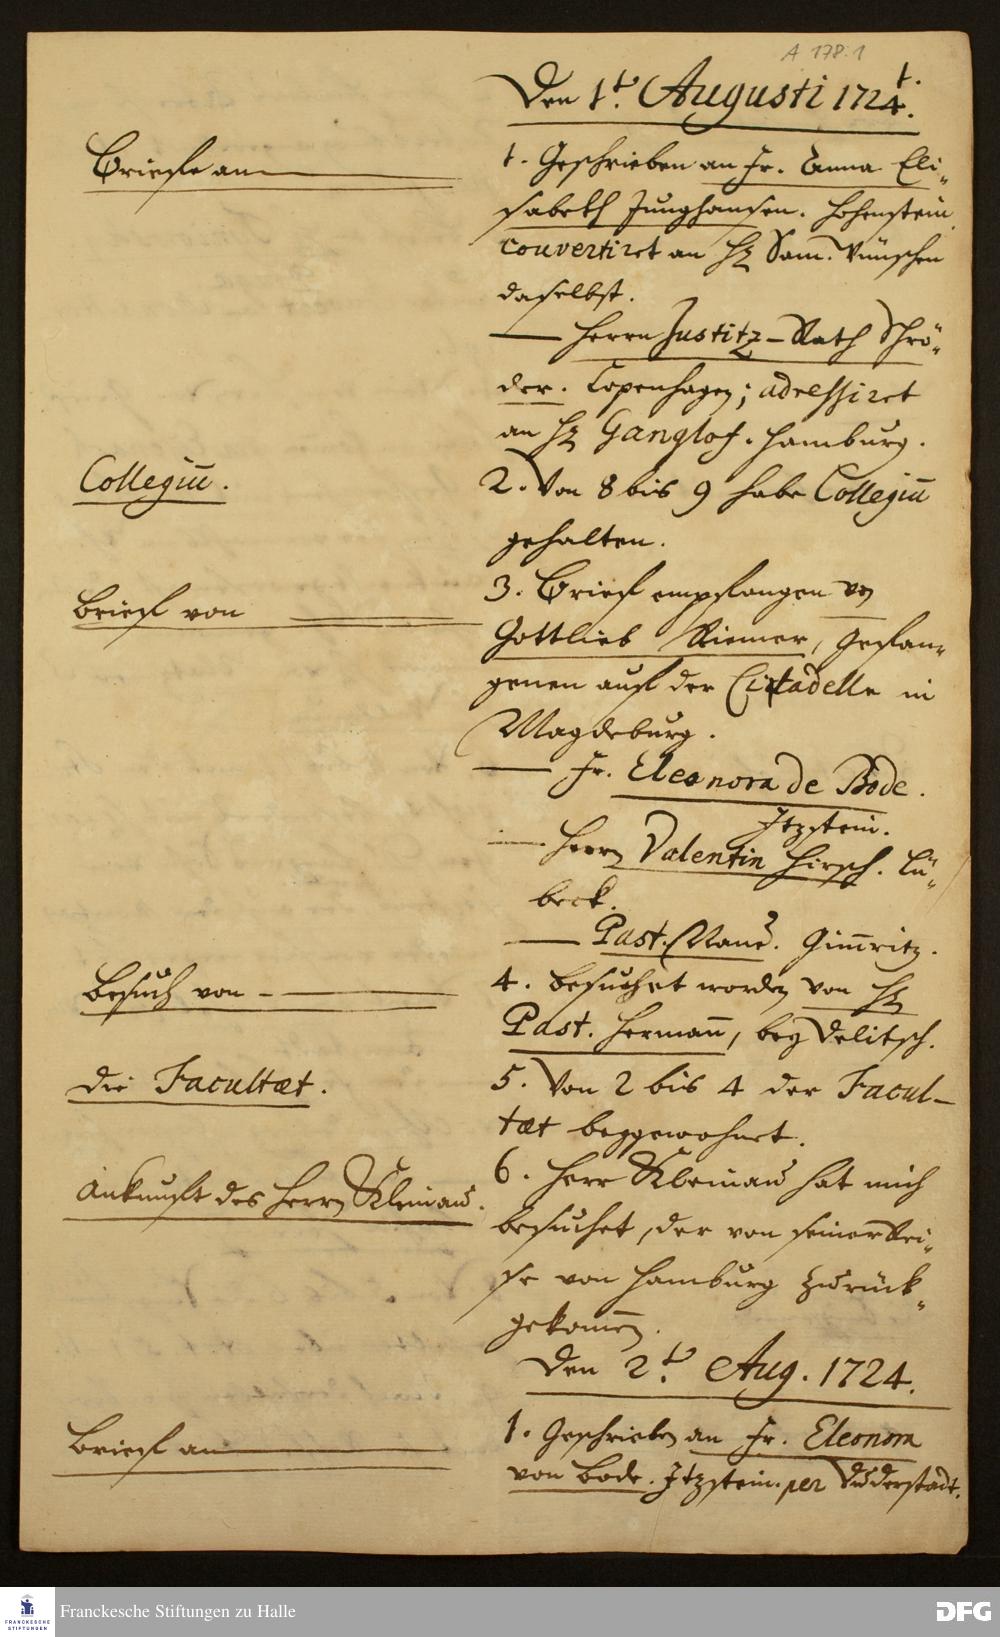 A 178:1
1.
Den 1t. Augusti 1724.
Brieffe an
1. Geschrieben an Fr. Anna Eli-
sabeth Junghansen. Hohenstein
couvertiret an H. Sam. Wünschen
daselbst.
— Herrn Justitz-Rath Schrö-
der. Copenhagen; adressiret
an H. Ganglof. Hamburg.
Collegiū.
2. Von 8 bis 9 habe Collegiū
gehalten.
Brieff von
3. Brieff empfangen von
Gottlieb Riemer, Gefan-
genen auff der Citadelle in
Magdeburg.
— Fr. Eleonora de Bode.
Itzstein.
— Herrn Valentin Hirsch. Lü-
beck.
— Past. Gim̄ritz.
Besuch von
4. Besuchet worden von H.
Past. Herman̄, bey Delitsch.
Die Facultæt.
5. Von 2 bis 4 der Facul-
tæt beygewohnet.
Ankunfft des Herrn Kleinau.
6. Herr Kleinau hat mich
besuchet, der von seiner Rei-
se von Hamburg zurück-
gekom̄en.
Den 2t. Aug. 1724.
Brieff an
1. Geschrieben an Fr. Eleonora
von Bode. Itzstein. per Duderstadt.
FRANCKESCHE STIFTUNGEN
Franckesche Stiftungen zu Halle
DFG